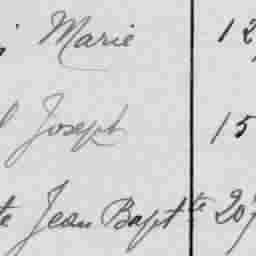 Marie 12
Joseph 15
te Jean Bapte 207